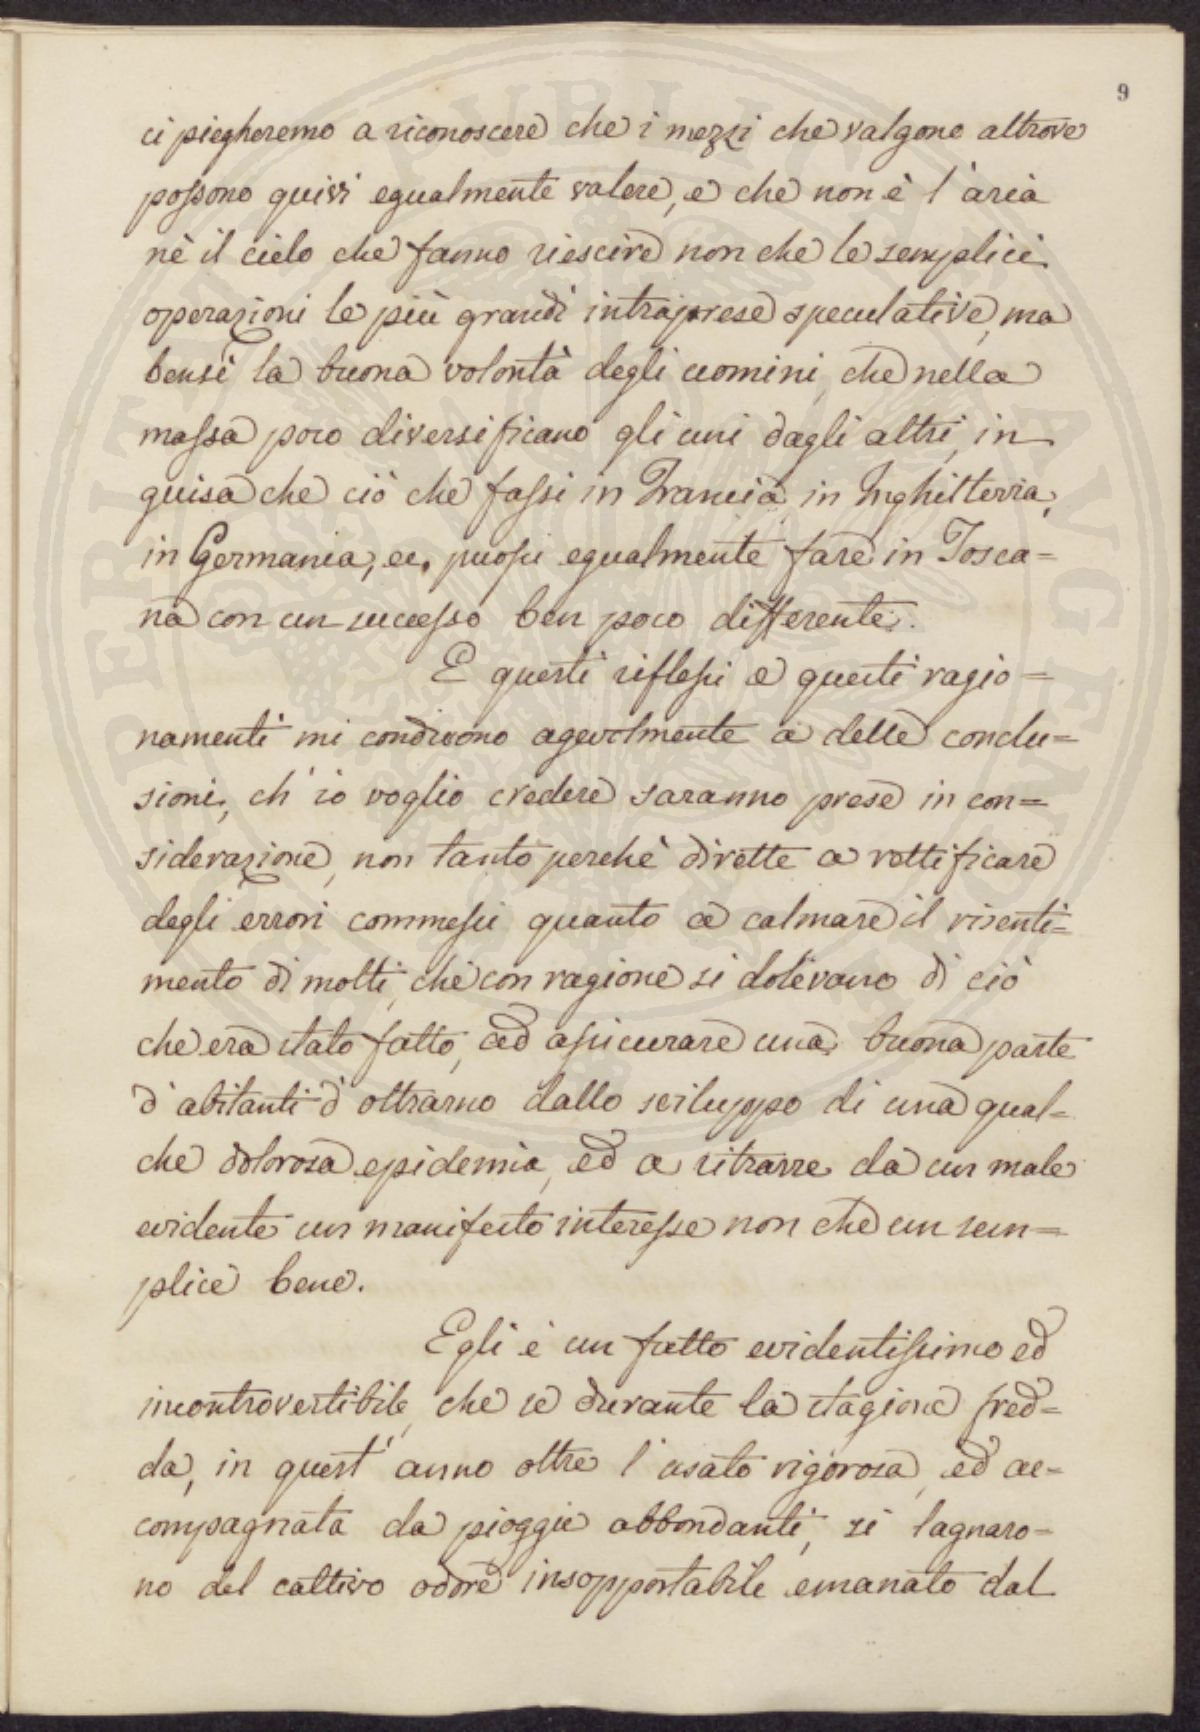 9
ci piegheremo a riconoscere che i mezzi che valgono altrove
possono quivi egualmente valere, e che non è l'aria
nè il cielo che fanno riescire non che le semplici
operazioni le più grandi intraprese speculative, ma
bensì la buona volontà degli uomini, che nella
massa poco diversificano gli uni dagli altri, in
guisa che ciò che fassi in Francia, in Inghilterra,
in Germania, ec. puossi egualmente fare in Tosca=
na con un successo ben poco differente.
E questi riflessi e questi ragio=
namenti mi condurono agevolmente a delle conclu=
sioni, ch'io voglio credere saranno prese in con=
siderazione, non tanto perchè dirette a rettificare
degli errori commessi quanto a calmare il risenti=
mento di molti, che con ragione si dolevano di ciò
che era stato fatto, ad assicurare una buona parte
d'abitanti d'oltrarno dallo sviluppo di una qual=
che dolorosa epidemia, ed a ritrarre da un male
evidente un manifesto interesse non che un sem=
plice bene.
Egli è un fatto evidentissimo ed
incontrovertibile, che se durante la stagione fred=
da, in quest'anno oltre l'usato rigorosa, ed ac=
compagnata da pioggie abbondanti, si lagnaro=
no del cattivo odore insopportabile emanato dal
PVBLICAE
AVGENDO
PERITIA